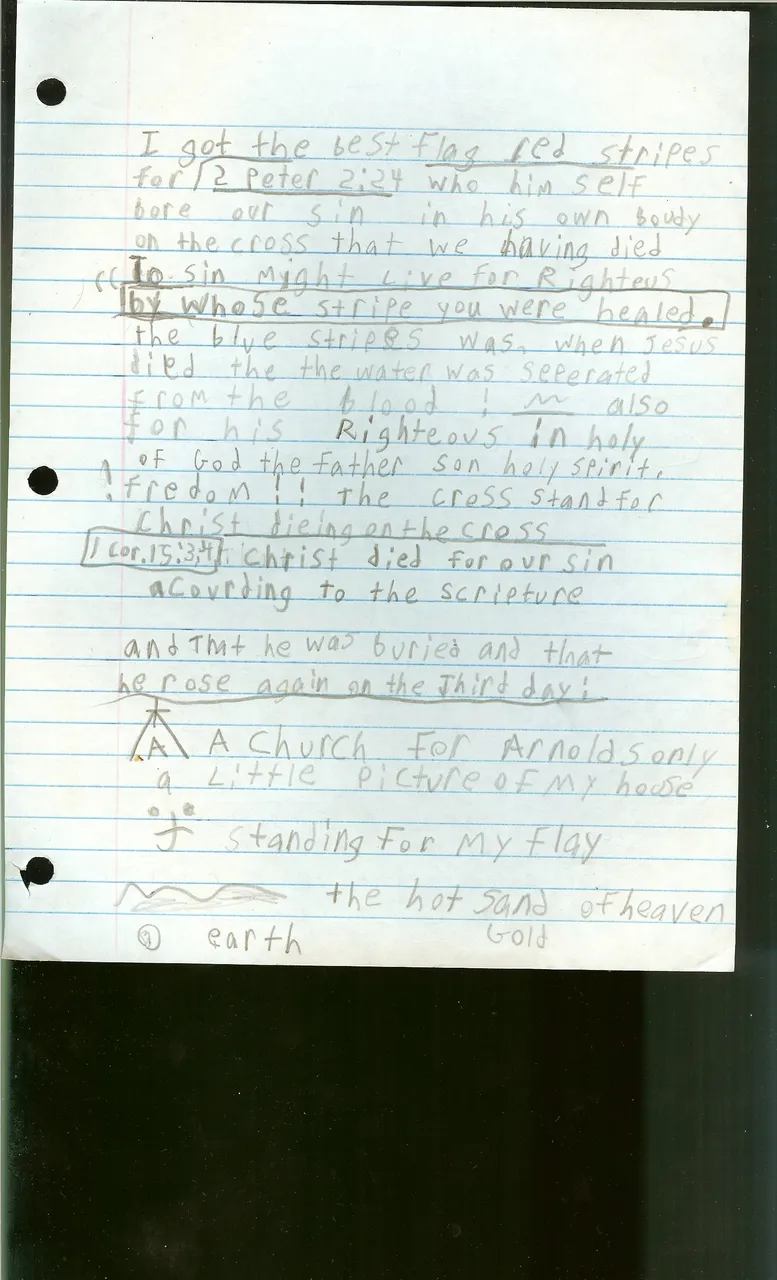 I got the best flag red stripes
for 2 Peter 2:24 who him self
bore our sin in his own boudy
on the cross that we having died
"To sin myght Live for Righteus
by whose stripe you were healed.
the blue stripes was. when Jesus
died the the water was seperated
from the blood ! also
for his Righteous in holy
of God the father son holy spirit.
! fredom !! the cross stand for
Christ dieing on the cross
1 Cor.15:3,4 Christ died for our sin
acourding to the scripture
and that he was buried and that
he rose again on the Third day!
A A Church for Arnolds only
a Little picture of my house
standing for my flay
the hot sand of heaven
earth Gold